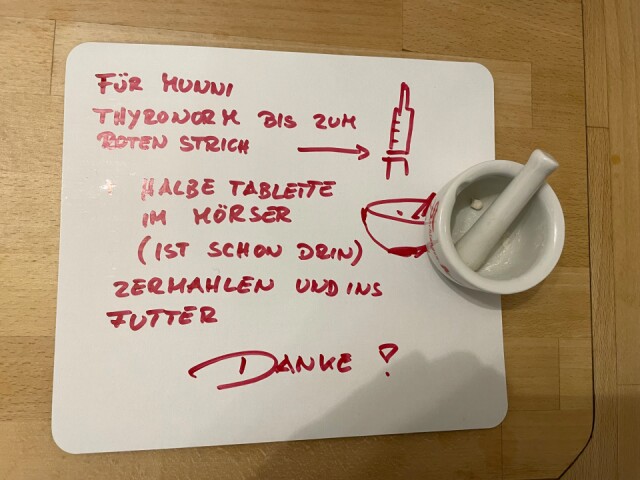 FÜR MUNNI
THYRONORM BIS ZUM
ROTEN STRICH
+ HALBE TABLETTE
IM MÖRSER
(IST SCHON DRIN)
ZERMAHLEN UND INS
FUTTER
DANKE!